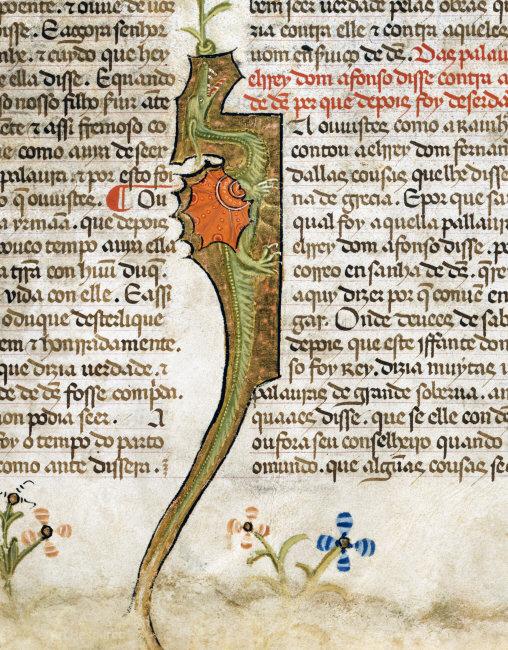 τ ouue de
isse. E agora senhor
τ cuydo que hey
e ella disse. E quando
o nosso filho
τ assi fremoso co
e como auia de seer
palaura τ por esto foi
o q̄ ouuistes. ¶ Ou
a yrmãa. que depois
pouco tempo auia ella
a tr̃a con huũ duq̃.
vida con elle. E assi
o duque desterlique
em τ honrradamente.
que dizia uerdade. τ
de dẽ fosse
non podia seer. A
foy o tempo do parto
como ante dissera.
bem seer uerdade pelas obras q̄
ria contra elle τ contra aquelles
de dẽ. Das palau
elrey dom afonso disse contra a
de dẽ per que depois foy deserda
A ouuistes como a
contou a elrey dom fernan
dallas cousas que lhe disse
na de grecia. E por que
qual foy aquella pallaura
elrrey dom afonso disse. po
correo en sanha de dẽ. q̄
aquy dizer por q̄
gar. Onde deuees de sab
depois que este iffante dom
so foy Rey. dizia muytas
palauras de grande soberua. an
quaaes disse. que se elle con
ou fora seu conselheiro quando
o mundo. que algũas cousas se